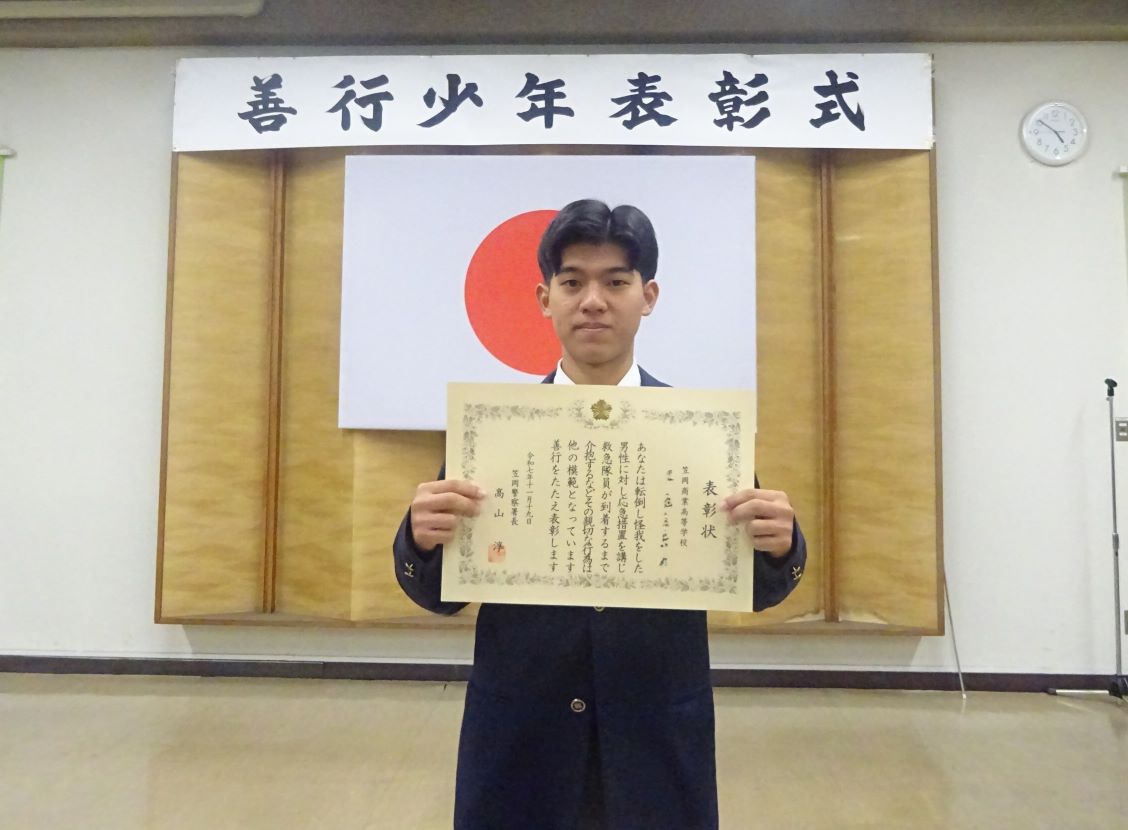 善行少年表彰式
表彰状
笠岡商業高等学校
あなたは転倒し怪我をした
男性に対し応急措置を講じ
救急隊員が到着するまで
介抱するなどその親切な行為は
他の模範となっています
善行をたたえ表彰します
令和七年十一月十九日
笠岡警察署長
高山淳